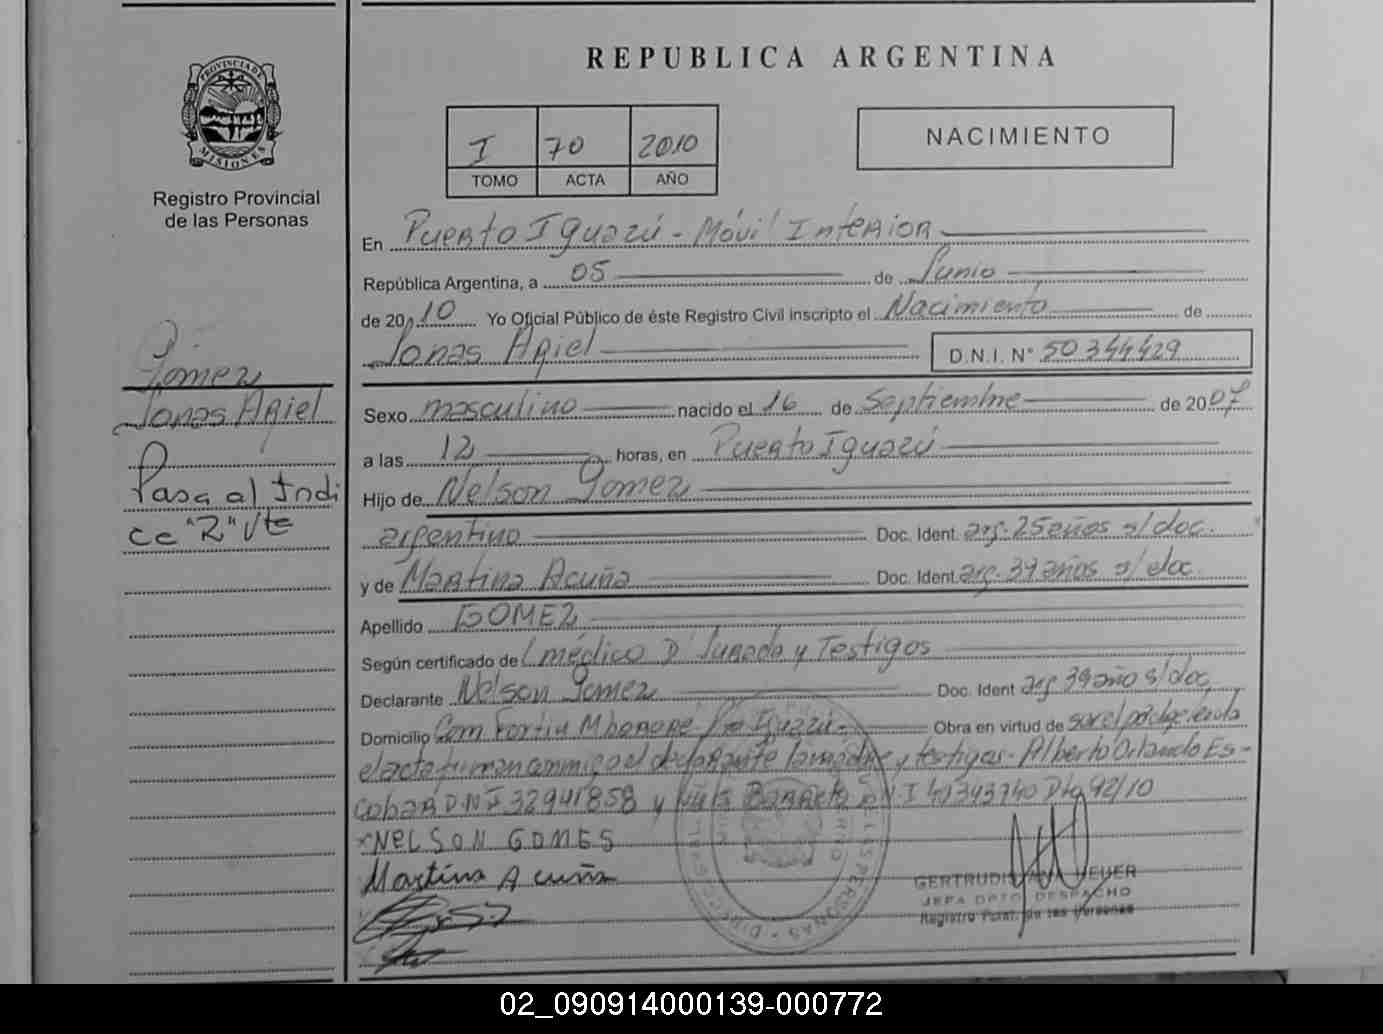 REPUBLICA ARGENTINA
PROVINCIA DE
MISIONES
Registro Provincial
de las Personas
I 70 2010
TOMO ACTA AÑO
NACIMIENTO
En Puerto Iguazú - Móvil Interior
República Argentina, a 05 de Junio
de 2010 Yo Oficial Público de éste Registro Civil inscripto el Nacimiento de
Jonas Ariel D.N.I. N° 50344429
Gómez
Jonas Ariel
Pasa al Indi
ce "Z" Vte
Sexo masculino nacido el 16 de Septiembre de 2007
a las 12 horas, en Puerto Iguazú
Hijo de Nelson Gomez
argentino Doc. Ident. arg. 25 años s/doc.
y de Martina Acuña Doc. Ident. arg. 39 años s/doc.
Apellido GOMEZ
Según certificado de médico D' Jurada y Testigos
Declarante Nelson Gomez Doc. Ident arg 39 año s/doc
Domicilio Com Fortin Mborore Pto Iguazú - Obra en virtud de
el acta firman conmigo el declarante la madre y testigos - Alberto Orlando Es-
cobar D.N.I 32941858 y Barreto 92/10
NELSON GOMES
Martina Acuña
GERTRUDIS MEYER
JEFA DPTO. DESPACHO
Registro Pcial. de las Personas
02_090914000139-000772